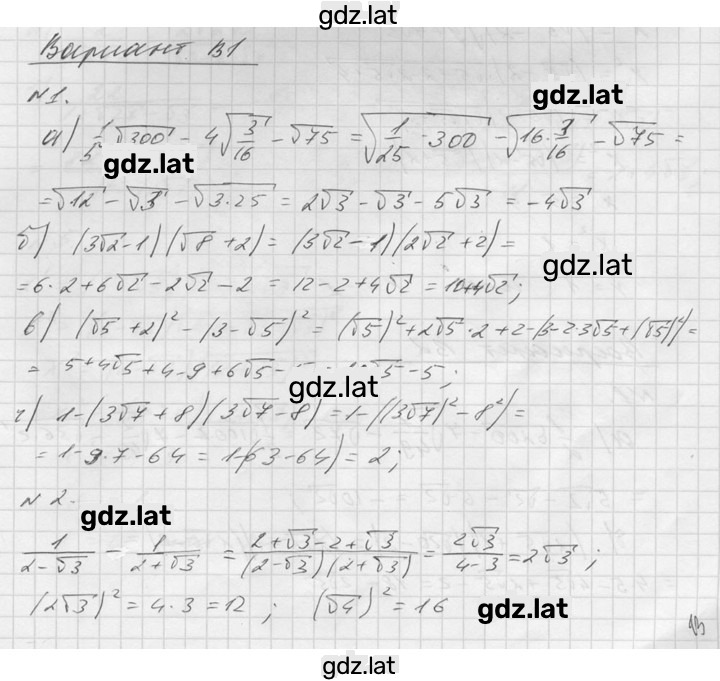 gdz.lat
Вариант В1
gdz.lat
№1.
а) 1/5 √300 − 4√(3/16) − √75 = √(1/25 · 300) − √(16 · 3/16) − √75 =
gdz.lat
= √12 − √3 − √(3·25) = 2√3 − √3 − 5√3 = −4√3
б) (3√2 − 1)(√8 + 2) = (3√2 − 1)(2√2 + 2) =
gdz.lat
= 6·2 + 6√2 − 2√2 − 2 = 12 − 2 + 4√2 = 10 + 4√2;
в) (√5 + 2)² − (3 − √5)² = (√5)² + 2√5·2 + 2 − (3 − 2·3√5 + (√5)²) =
= 5 + 4√5 + 4 − 9 + 6√5 − √5 − 5;
gdz.lat
г) 1 − (3√7 + 8)(3√7 − 8) = 1 − ((3√7)² − 8²) =
= 1 − 9·7 − 64 = 1 − (63 − 64) = 2;
№2.
gdz.lat
1/(2 − √3) − 1/(2 + √3) = (2 + √3 − 2 + √3)/((2 − √3)(2 + √3)) = 2√3/(4 − 3) = 2√3;
(2√3)² = 4·3 = 12; (√4)² = 16
gdz.lat
gdz.lat